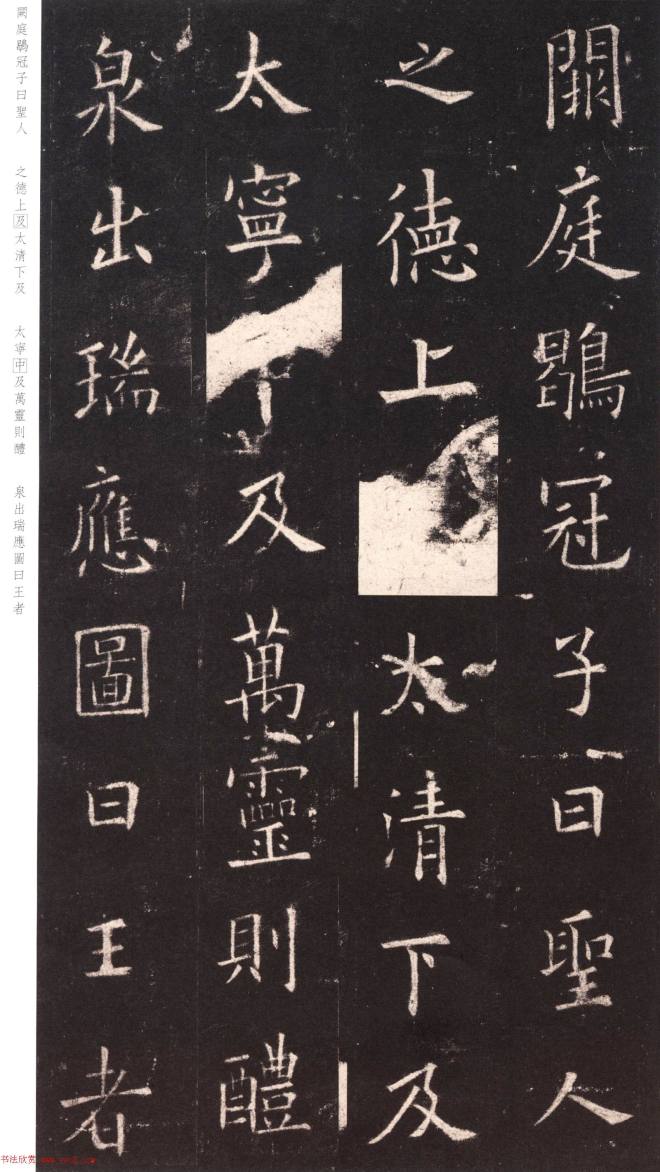 闕庭鶡冠子曰聖人
之德上太清下及
太寧及萬靈則醴
泉出瑞應圖曰王者
闕庭鶡冠子曰聖人 之德上及太清下及 太寧中及萬靈則醴 泉出瑞應圖曰王者
书法欣赏